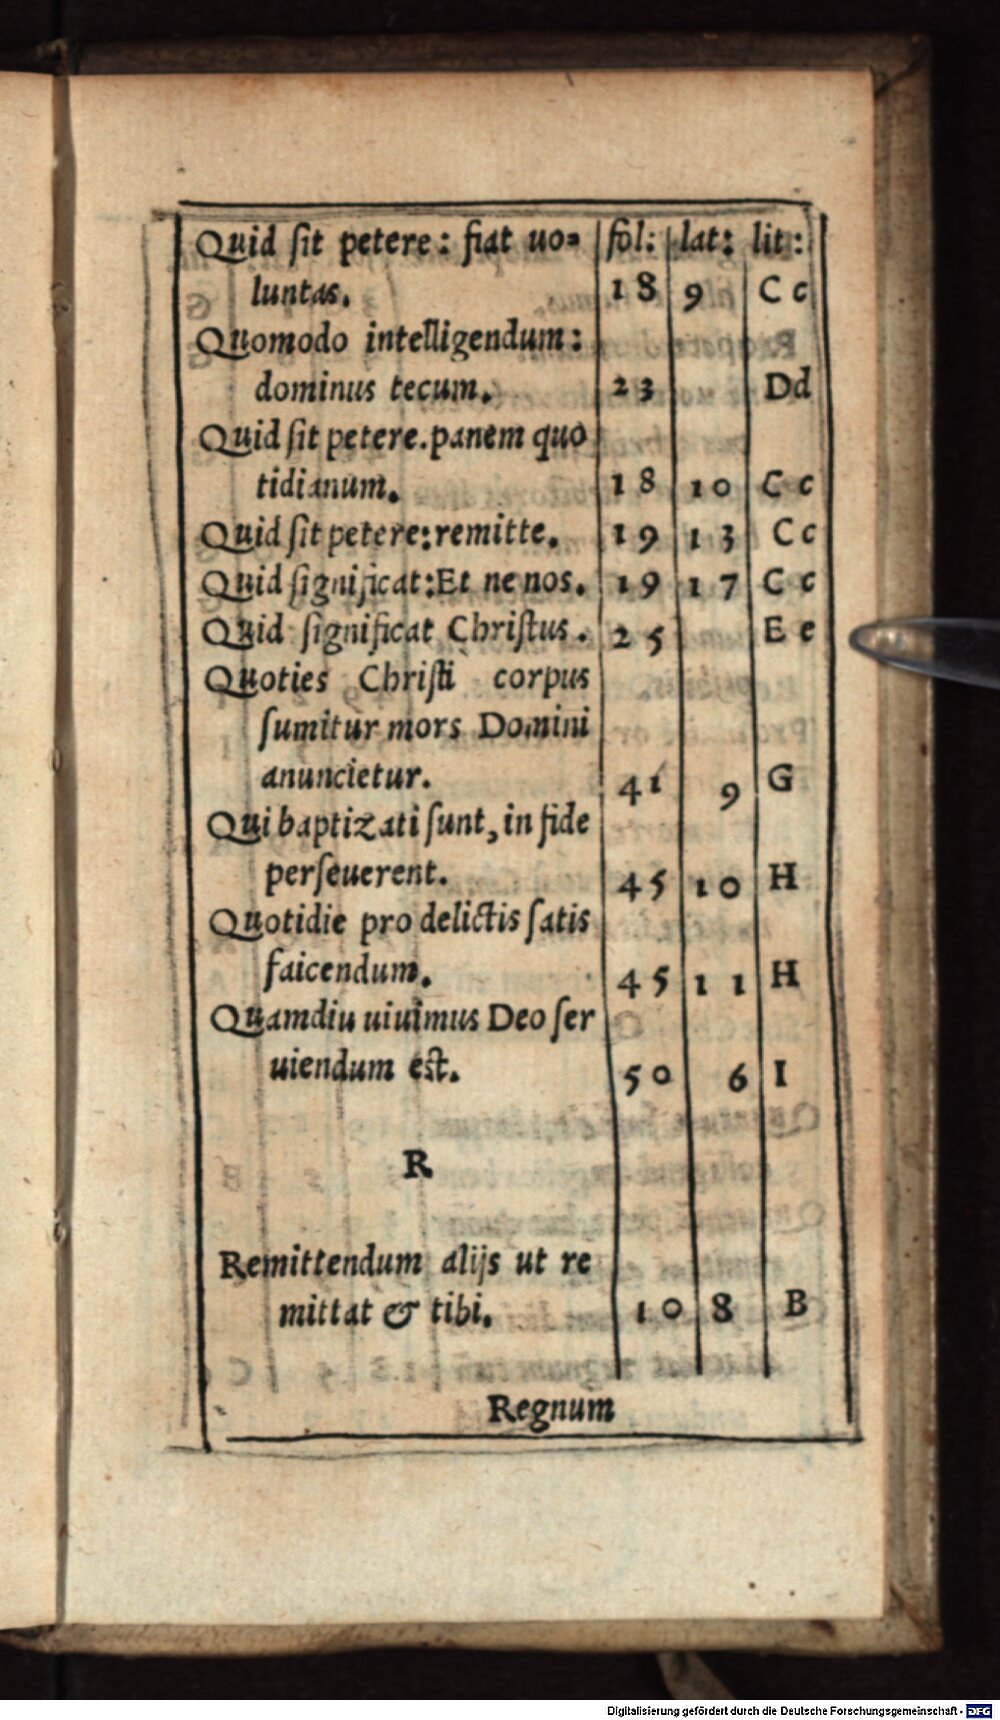 Quid ſit petere: fiat uo= fol: lat: lit:
luntas. 18 9 Cc
Quomodo intelligendum:
dominus tecum. 23 Dd
Quid ſit petere. panem quo
tidianum. 18 10 Cc
Quid ſit petere: remitte. 19 13 Cc
Quid ſignificat: Et ne nos. 19 17 Cc
Quid ſignificat Chriſtus. 25 Ee
Quoties Chriſti corpus
ſumitur mors Domini
anuncietur. 41 9 G
Qui baptizati ſunt, in fide
perſeuerent. 45 10 H
Quotidie pro delictis ſatis
faicendum. 45 11 H
Quamdiu uiuimus Deo ſer
uiendum eſt. 50 6 I
R
Remittendum alijs ut re
mittat & tibi. 10 8 B
Regnum
Digitalisierung gefördert durch die Deutsche Forschungsgemeinschaft - DFG